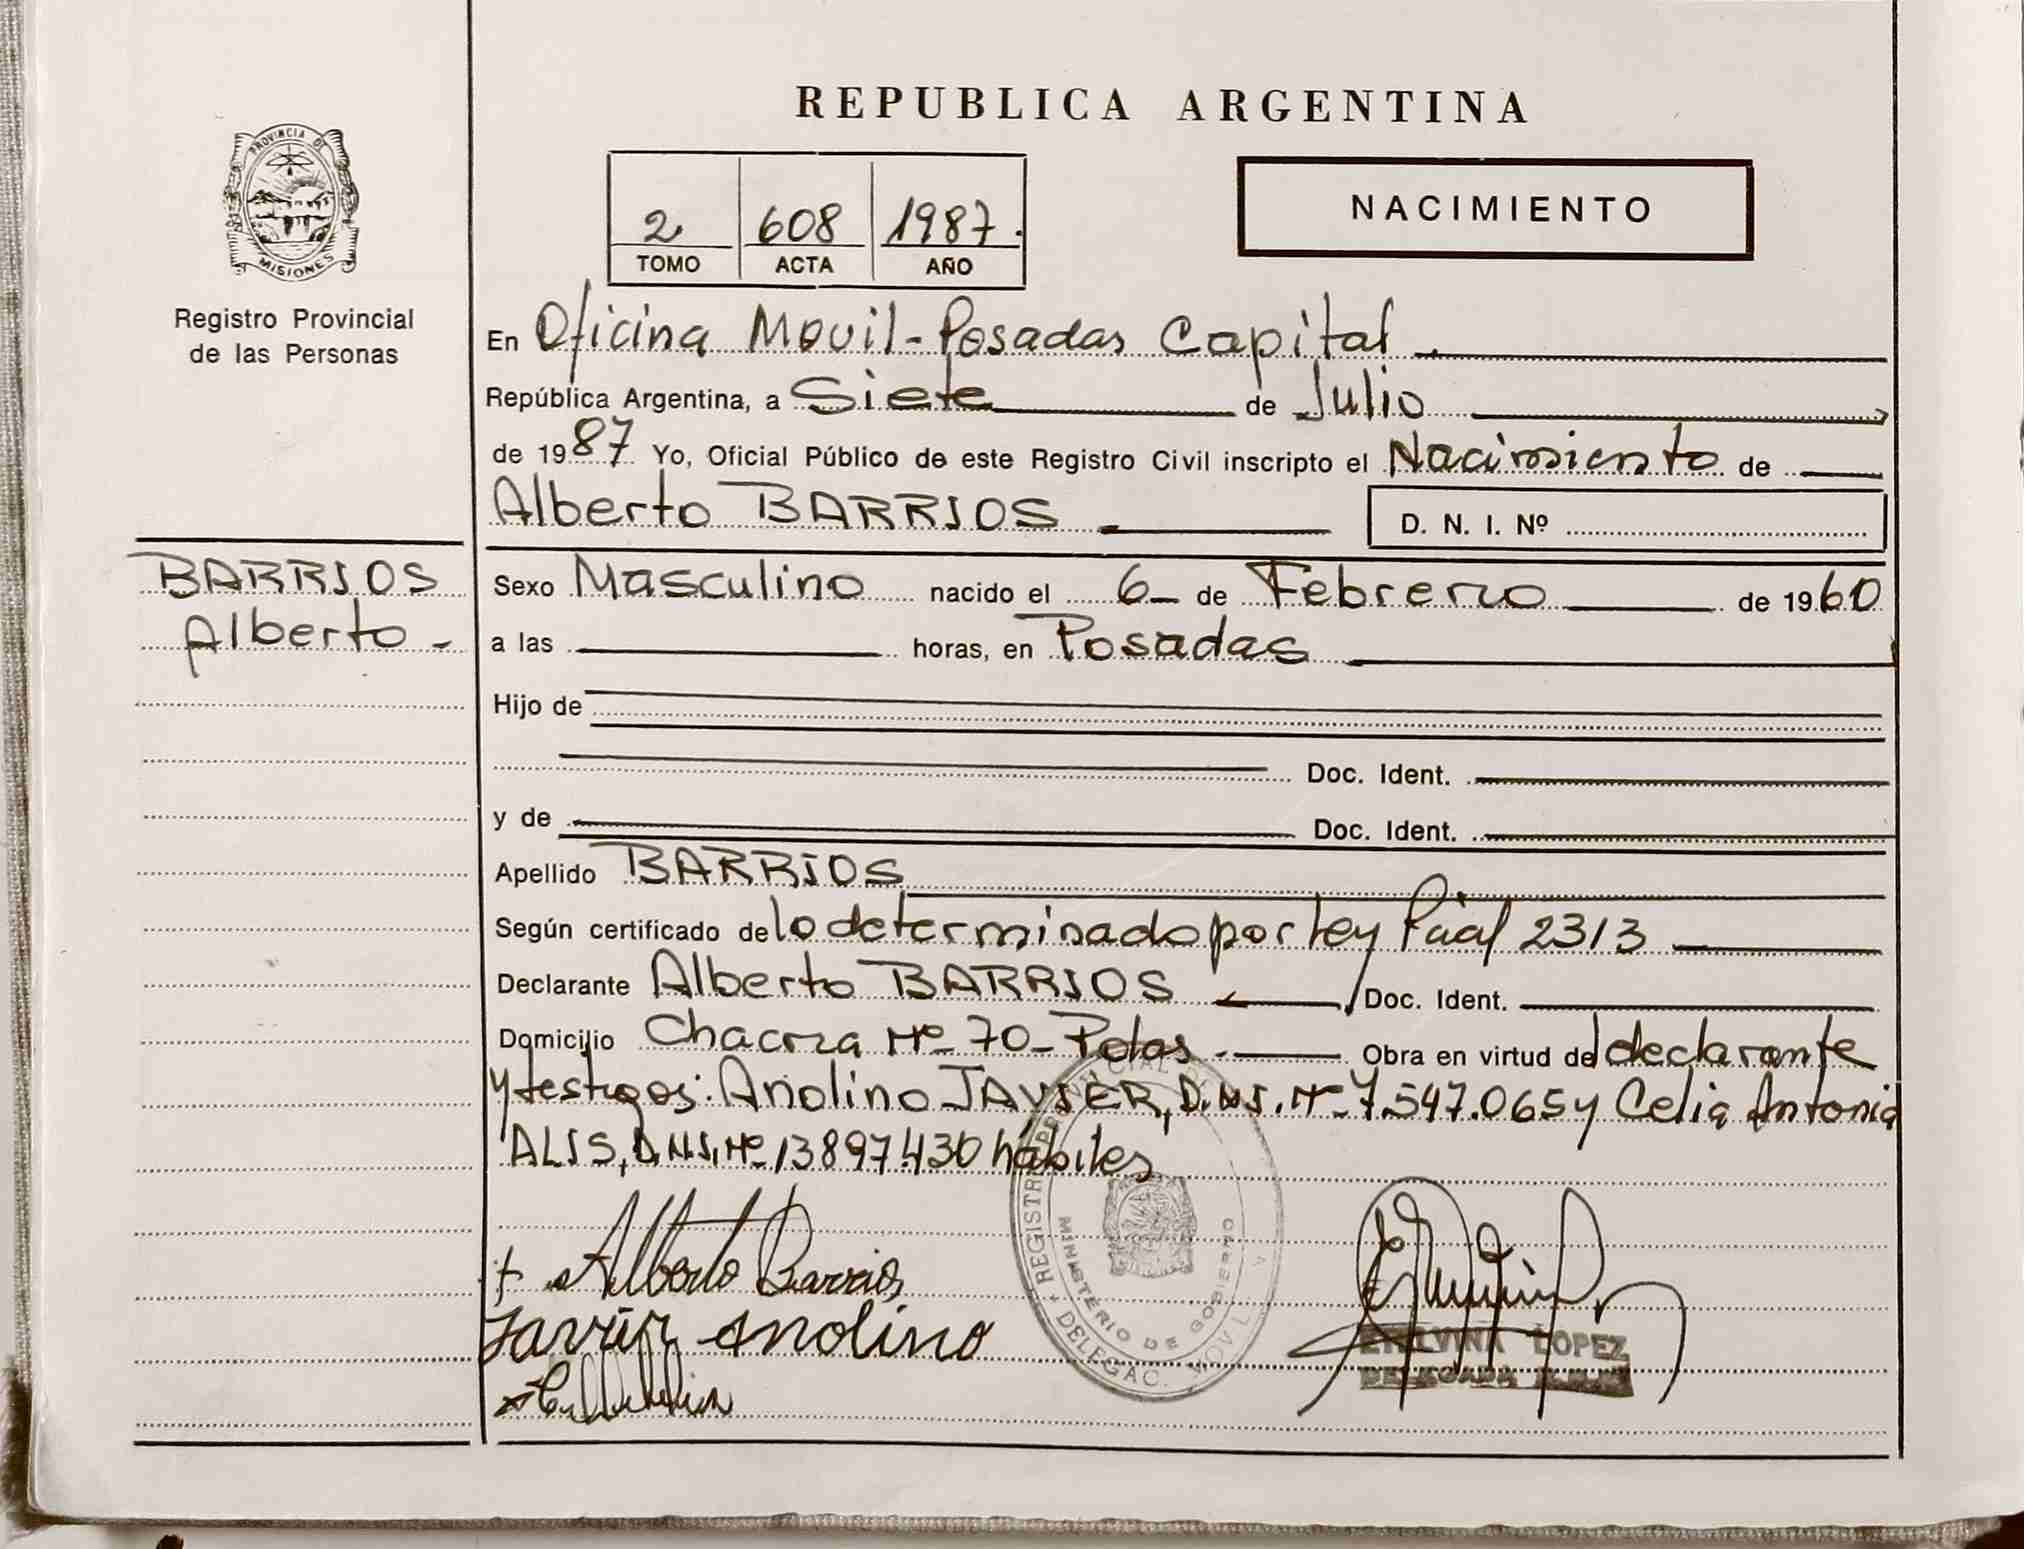 REPUBLICA ARGENTINA
PROVINCIA DE
MISIONES
Registro Provincial
de las Personas
2 608 1987.
TOMO ACTA AÑO
NACIMIENTO
En Oficina Movil-Posadas Capital.
República Argentina, a Siete de Julio
de 1987 Yo, Oficial Público de este Registro Civil inscripto el Nacimiento de
Alberto BARRIOS
D. N. I. Nº
BARRIOS
Alberto -
Sexo Masculino nacido el 6 de Febrero de 1960
a las horas, en Posadas
Hijo de
Doc. Ident.
y de Doc. Ident.
Apellido BARRIOS
Según certificado de lo determinado por Ley Pcial 2313
Declarante Alberto BARRIOS Doc. Ident.
Domicilio Chacra Nº 70 - Pdas. Obra en virtud del declarante
y testigos: Anolino JAVIER, D.N.I. Nº 7.547.065 y Celia Antonia
ALIS, D.N.I. Nº 13897.430 hábiles
Alberto Barrios
Javier Anolino
REGISTRO PROVINCIAL DE
MINISTERIO DE GOBIERNO
DELEGAC. MOVIL
ETELVINA LOPEZ
DELEGADA